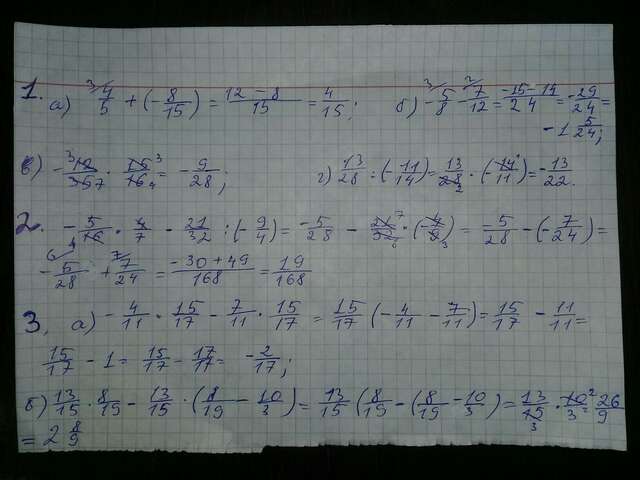 1. а) 4/5 + (-8/15) = 12-8/15 = 4/15; б) -5/8 - 7/12 = -15-14/24 = -29/24 =
-1 5/24;
в) -12/35 · 15/16 = -9/28; г) 13/28 : (-11/14) = 13/28 · (-14/11) = -13/22.
2. -5/16 · 4/7 - 21/32 : (-9/4) = -5/28 - 21/32 · (-4/9) = 5/28 - (-7/24) =
-5/28 + 7/24 = -30+49/168 = 19/168
3. а) -4/11 · 15/17 - 7/11 · 15/17 = 15/17 (-4/11 - 7/11) = 15/17 - 11/11 =
15/17 - 1 = 15/17 - 17/17 = -2/17;
б) 13/15 · 8/19 - 13/15 · (8/19 - 10/3) = 13/15 (8/19 - (8/19 - 10/3) = 13/15 · 10/3 = 26/9
= 2 8/9